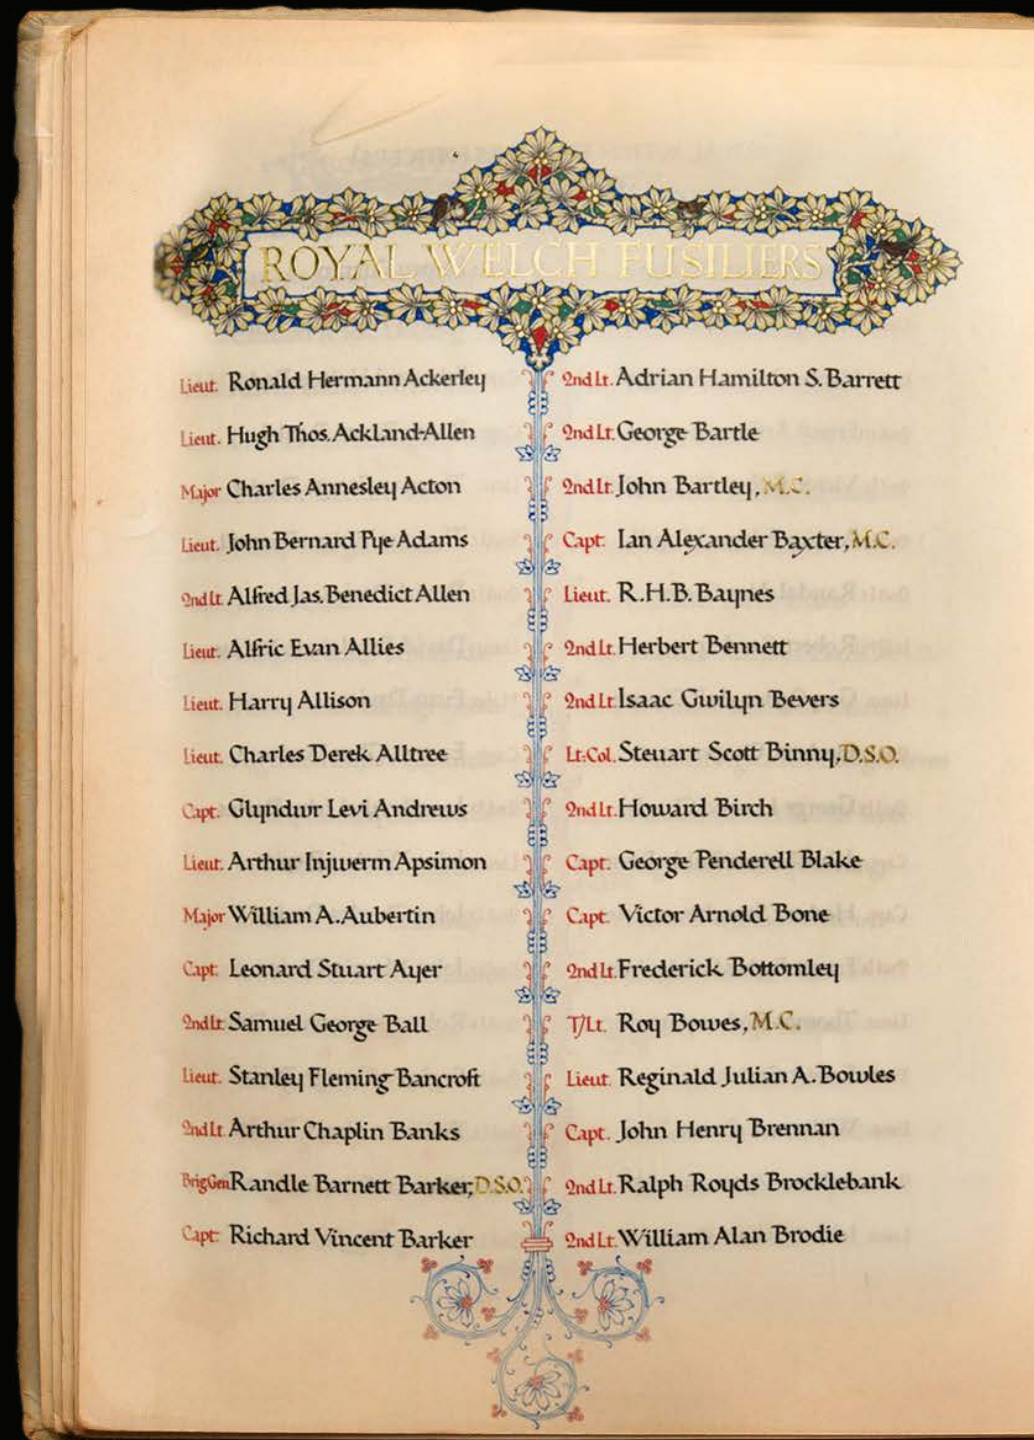 ROYAL WELCH FUSILIERS
Lieut. Ronald Hermann Ackerley
Lieut. Hugh Thos. Ackland-Allen
Major Charles Annesley Acton
Lieut. John Bernard Pye Adams
2nd Lt. Alfred Jas. Benedict Allen
Lieut. Alfric Evan Allies
Lieut. Harry Allison
Lieut. Charles Derek Alltree
Capt. Glyndwr Levi Andrews
Lieut. Arthur Injwerm Apsimon
Major William A. Aubertin
Capt. Leonard Stuart Ayer
2nd Lt. Samuel George Ball
Lieut. Stanley Fleming Bancroft
2nd Lt. Arthur Chaplin Banks
Brig Gen Randle Barnett Barker, D.S.O.
Capt. Richard Vincent Barker
2nd Lt. Adrian Hamilton S. Barrett
2nd Lt. George Bartle
2nd Lt. John Bartley, M.C.
Capt. Ian Alexander Baxter, M.C.
Lieut. R.H.B. Baynes
2nd Lt. Herbert Bennett
2nd Lt. Isaac Gwilyn Bevers
Lt.-Col. Steuart Scott Binny, D.S.O.
2nd Lt. Howard Birch
Capt. George Penderell Blake
Capt. Victor Arnold Bone
2nd Lt. Frederick Bottomley
T/Lt. Roy Bowes, M.C.
Lieut. Reginald Julian A. Bowles
Capt. John Henry Brennan
2nd Lt. Ralph Royds Brocklebank
2nd Lt. William Alan Brodie